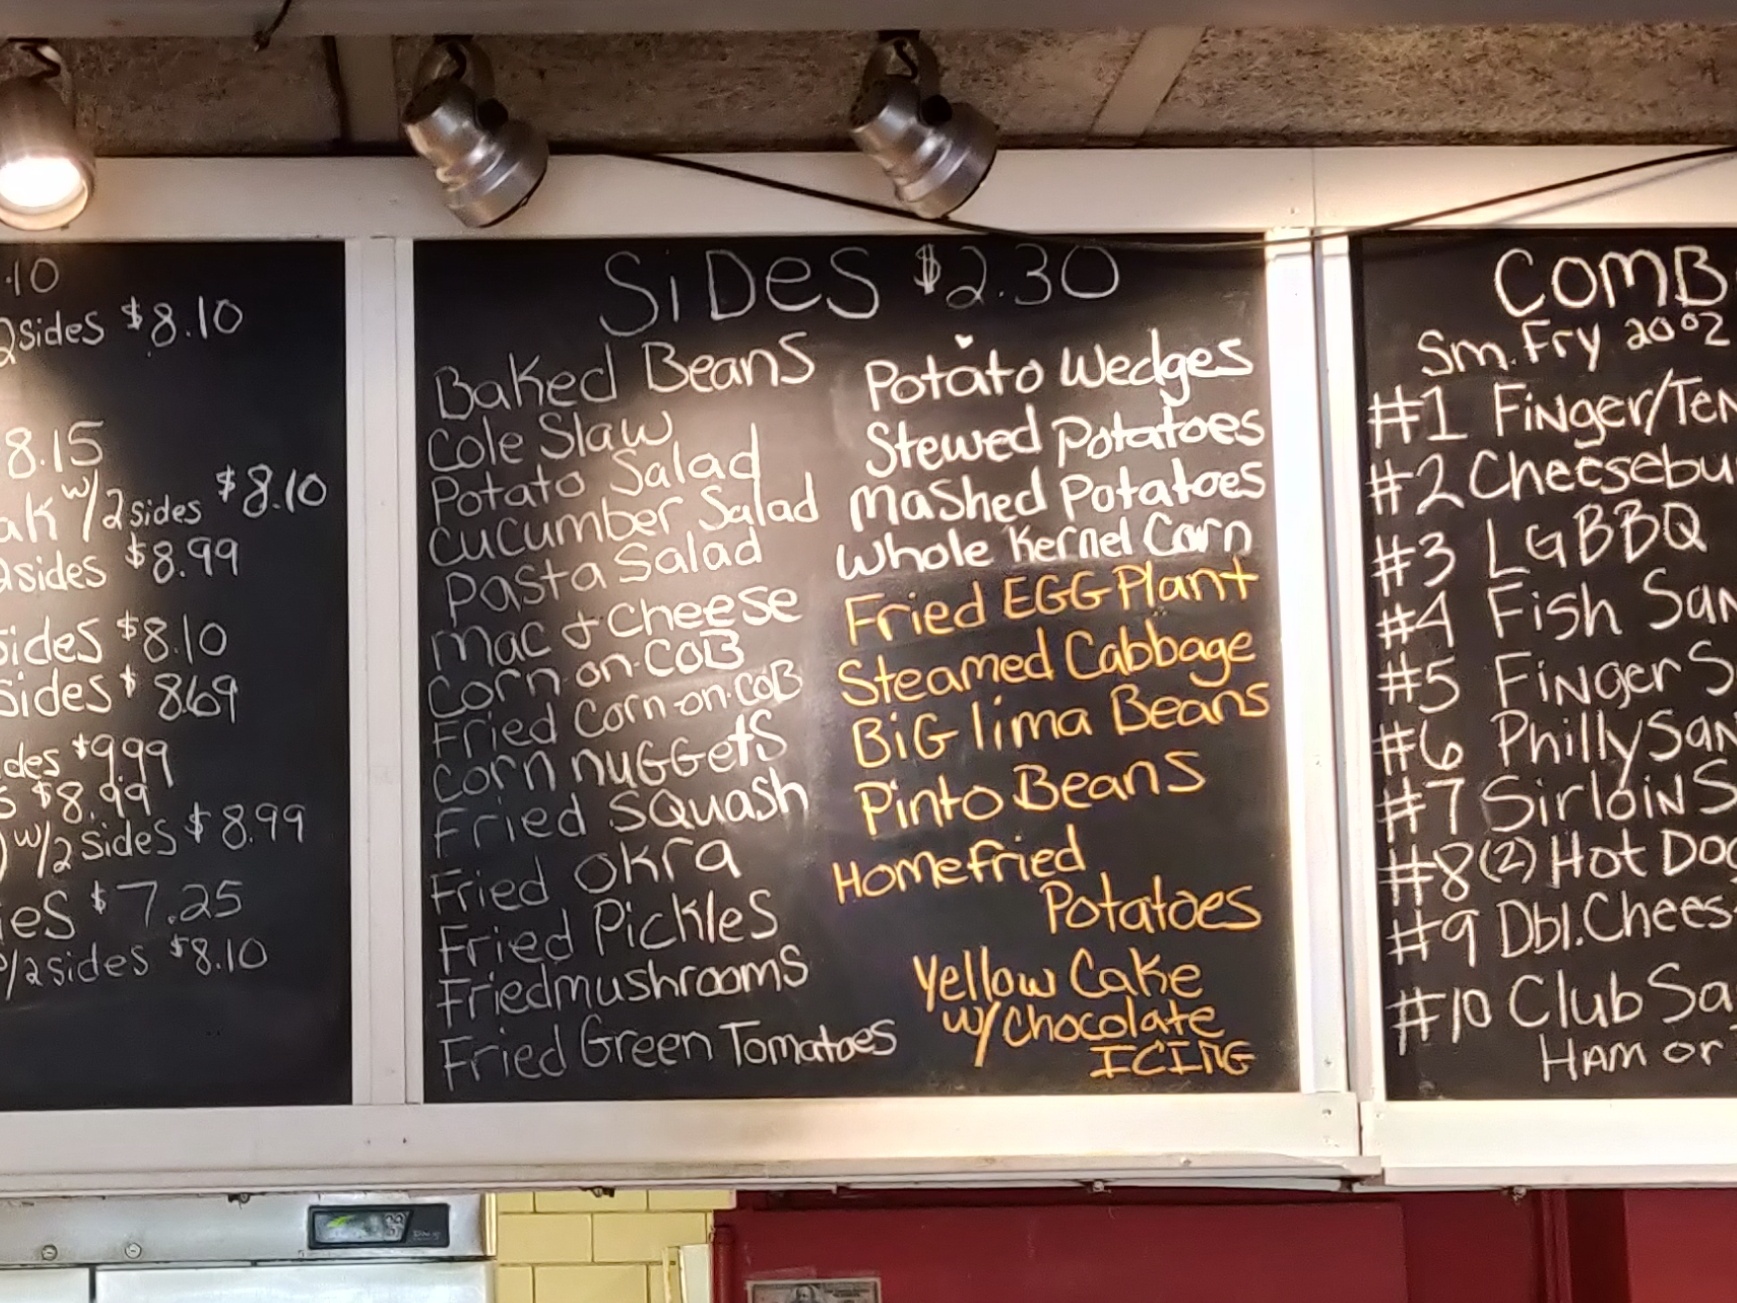 .10
2sides $8.10
8.15
w/2sides $8.10
2sides $8.99
sides $8.10
sides $8.69
$9.99
$8.99
w/2 sides $8.99
$7.25
w/2sides $8.10
SiDeS $2.30
Baked Beans
Cole Slaw
Potato Salad
Cucumber Salad
Pasta Salad
Mac & Cheese
Corn-on-COB
Fried Corn-on-COB
Corn nuGGets
Fried SQuash
Fried OKra
Fried Pickles
Friedmushrooms
Fried Green Tomatoes
Potato Wedges
Stewed Potatoes
Mashed Potatoes
Whole Kernel Corn
Fried EGG Plant
Steamed Cabbage
BiG lima Beans
Pinto Beans
Homefried
Potatoes
Yellow Cake
w/Chocolate
ICING
COMB
Sm. Fry 20oz
#1 Finger/Ten
#2 Cheesebu
#3 LG BBQ
#4 Fish San
#5 Finger S
#6 Philly San
#7 Sirloin S
#8 (2) Hot Dog
#9 Dbl. Chees
#10 Club Sa
HAM or